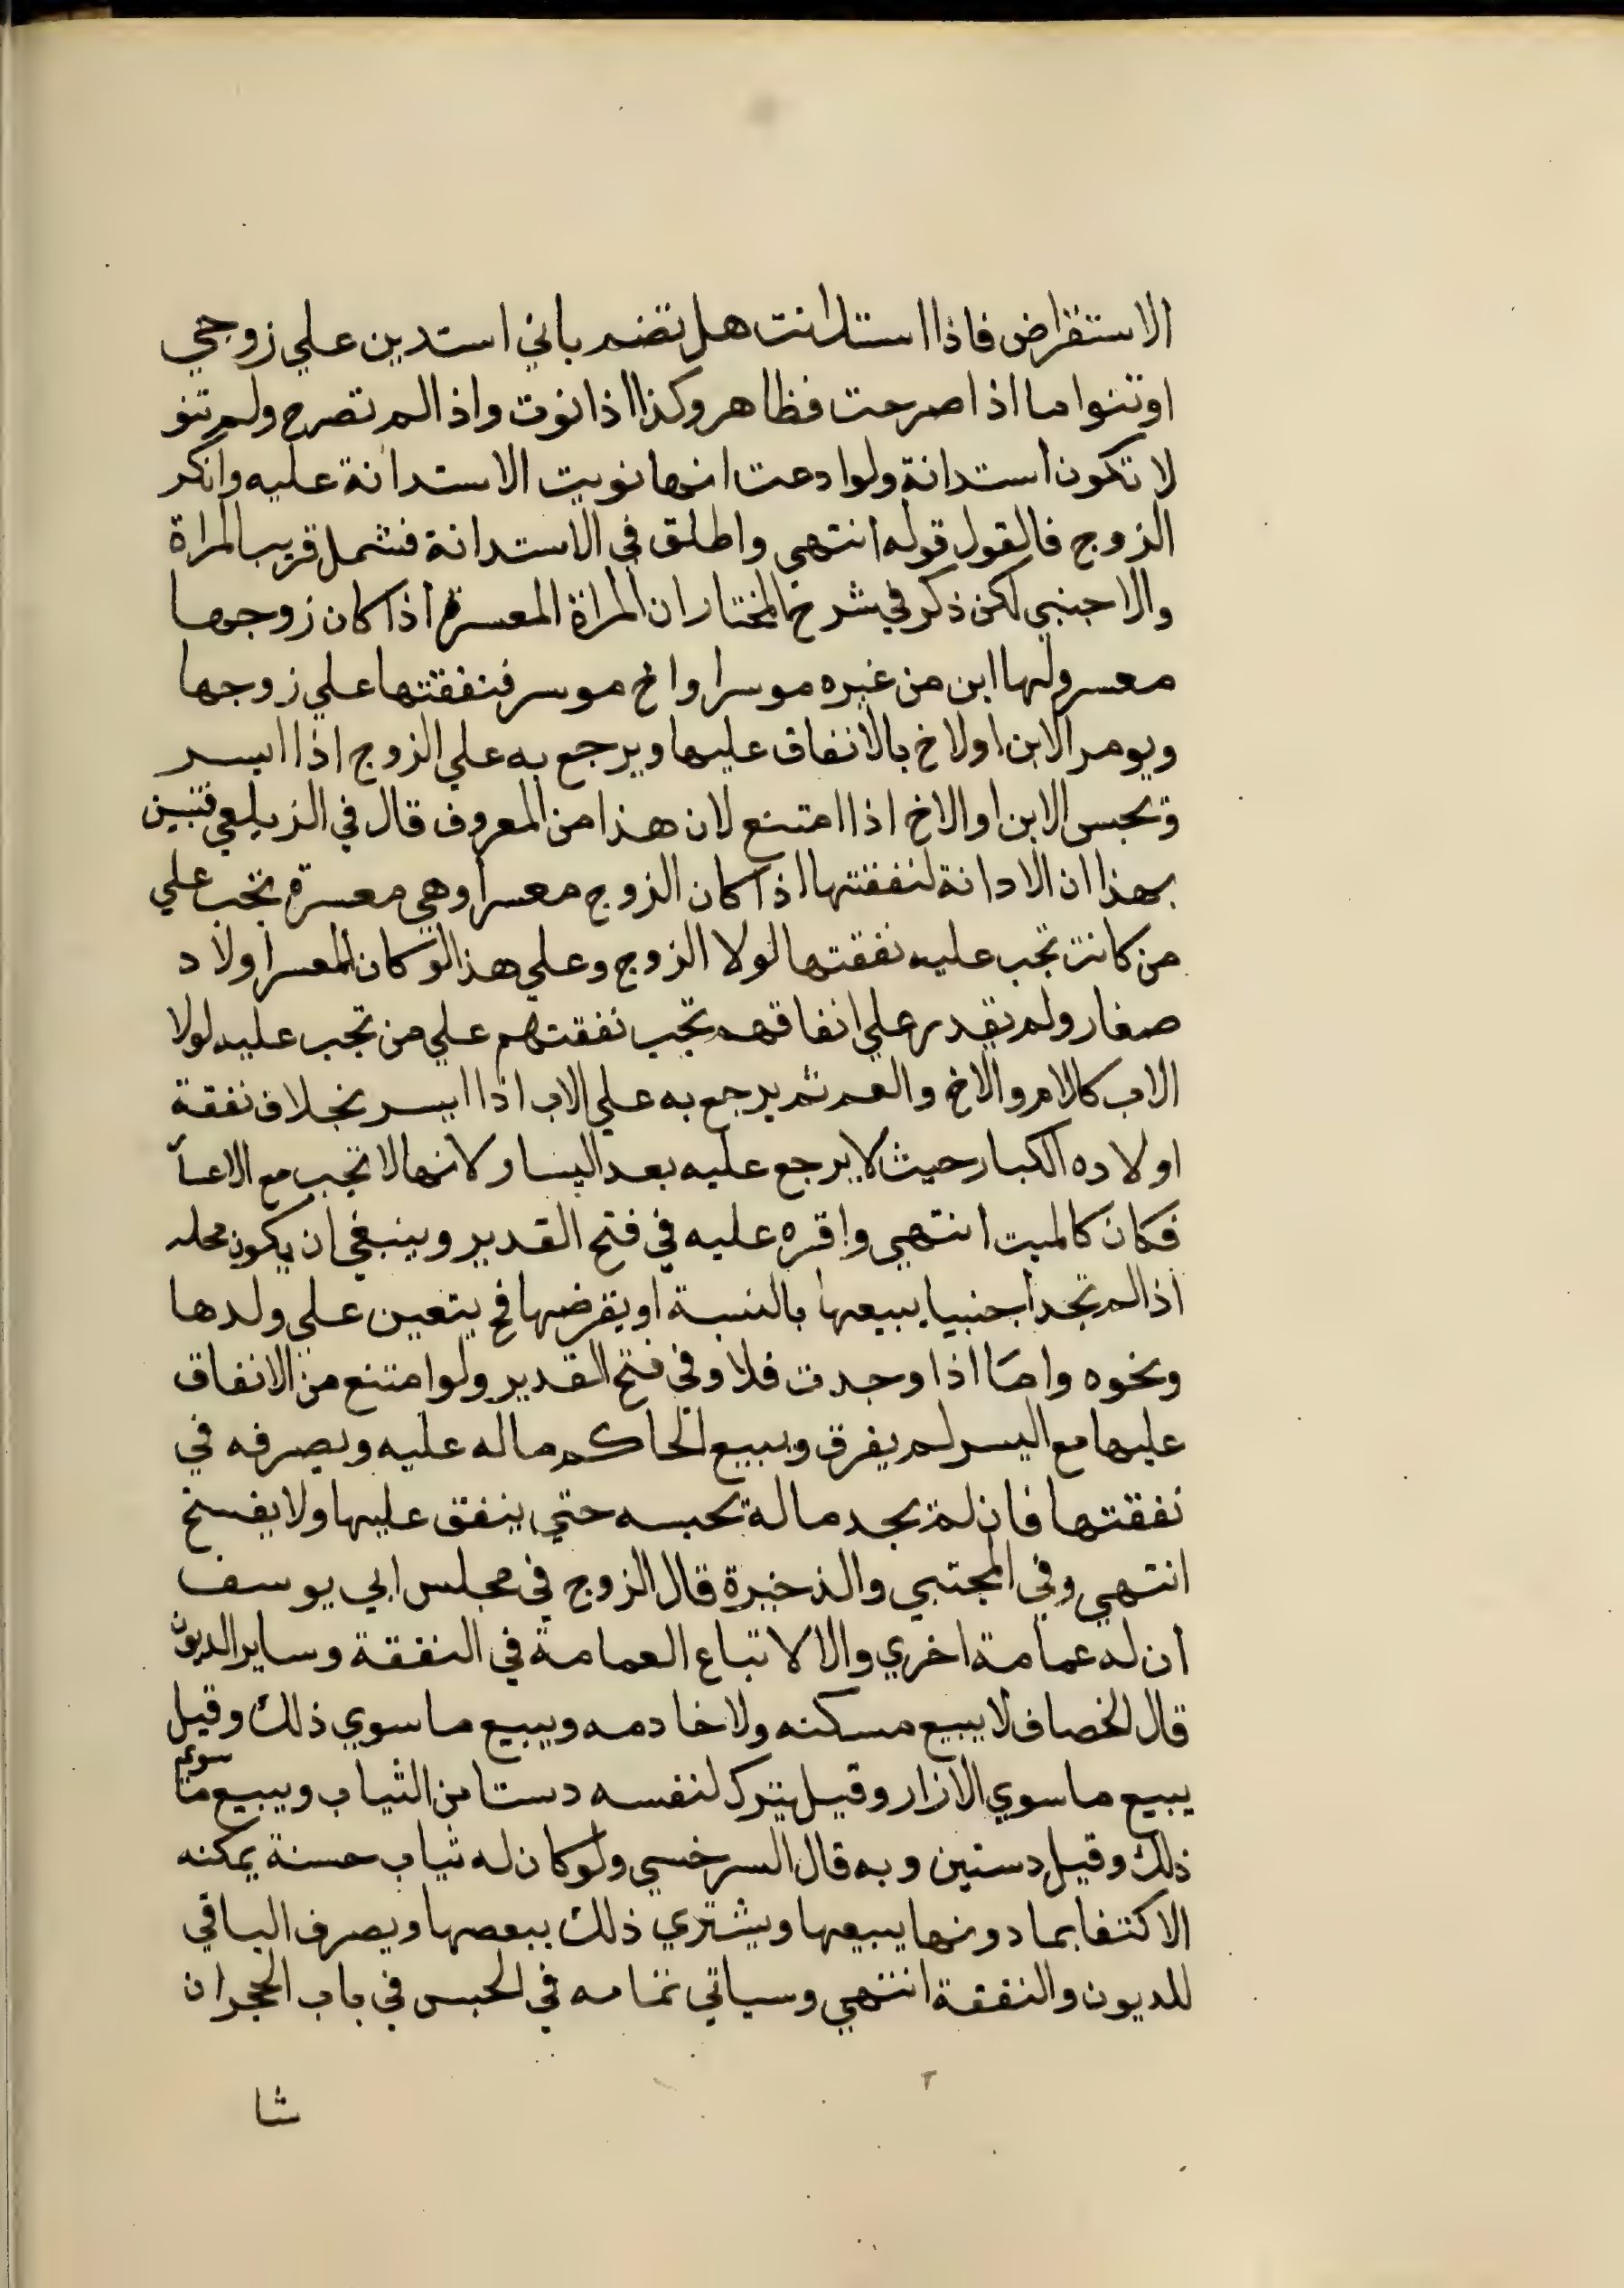 الاستقراض فاذا استدانت هل تضم باني استدين علي زوجي
او تنوا ما اذا صرحت فظاهر وكذا اذا نوت واذا لم تصرح ولم تنو
لا تكون استدانة ولو ادعت انها نويت الاستدانة عليه وانكر
الزوج فالقول قوله انتهي واطلق في الاستدانة فشمل قريب المراة
والاجنبي لكن ذكر في شرح المختار ان المراة المعسرة اذا كان زوجها
معسر ولها ابن من غيره موسرا واخ موسر فنفقتها علي زوجها
ويومر الابن او لاخ بالانفاق عليها ويرجع به علي الزوج اذا ايسر
وتحبس الابن او الاخ اذا امتنع لان هذا من المعروف قال في الزيلعي فتبين
بهذا ان الادانة لنفقتها اذا كان الزوج معسرا وهي معسرة تجب علي
من كانت تجب عليه نفقتها لولا الزوج وعلي هذا لو كان للمعسر اولاد
صغار ولم يقدر علي انفاقهم تجب نفقتهم علي من تجب عليه لولا
الاب كالام والاخ والعم ثم يرجع به علي الاب اذا ايسر بخلاف نفقة
اولاده الكبار حيث لا يرجع عليه بعد اليسار لانها لا تجب مع الاعسآ
فكان كالميت انتهي واقره عليه في فتح القدير وينبغي ان يكون محله
اذا لم تجد اجنبيا يبيعها بالنسبة او يقرضها فح يتعين علي ولدها
ونحوه واما اذا وجدت فلا وفي فتح القدير ولو امتنع من الانفاق
عليها مع اليسر لم يفرق ويبيع الحاكم ماله عليه ويصرفه في
نفقتها فان لم يجد ماله يحبسه حتي ينفق عليها ولا يفسخ
انتهي وفي المجتبي والذخيرة قال الزوج في مجلس ابي يوسف
ان له عمامة اخري والا لا تباع العمامة في النفقة وساير الديون
قال الخصاف لا يبيع مسكنه ولا خادمه ويبيع ما سوي ذلك وقيل
يبيع ما سوي الازار وقيل يترك لنفسه دستا من الثياب ويبيع ما سوي
ذلك وقيل دستين وبه قال السرخسي ولو كان له ثياب حسنة يمكنه
الاكتفا بما دونها يبيعها ويشتري ذلك ببعصها ويصرف الباقي
للديون والنفقة انتهي وسياتي تمامه في الحبس في باب الحجر ان
شا